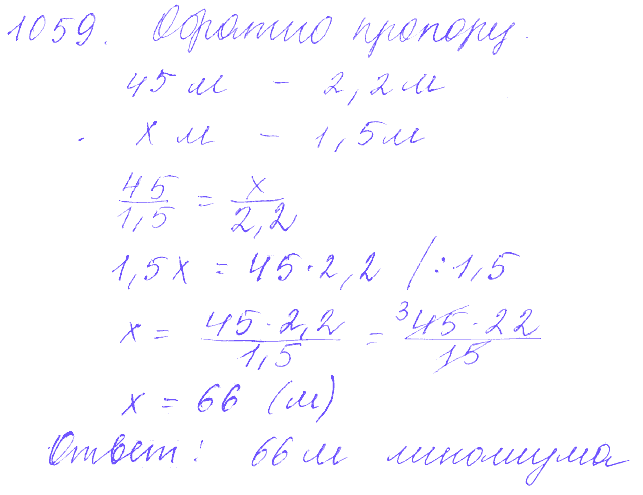 1059. Обратно пропорц.
45 м – 2,2 м
х м – 1,5 м
45/1,5 = х/2,2
1,5х = 45·2,2 /:1,5
х = 45·2,2/1,5 = ³45·22/15
х = 66 (м)
Ответ: 66 м линолиума